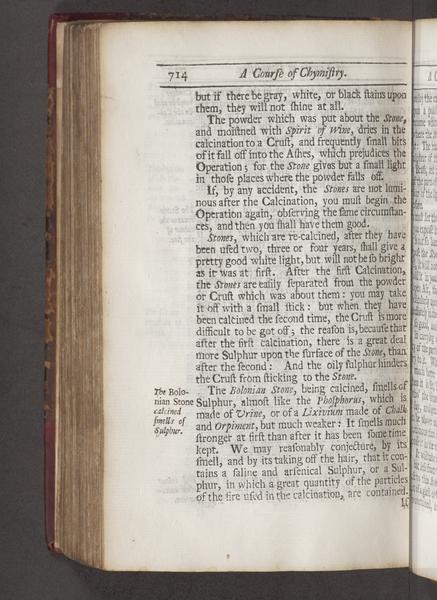 714 A Courſe of Chymiſtry.
but if there be gray, white, or black ſtains upon
them, they will not ſhine at all.
The powder which was put about the Stone,
and moiſtned with Spirit of Wine, dries in the
calcination to a Cruſt, and frequently ſmall bits
of it fall off into the Aſhes, which prejudices the
Operation; for the Stone gives but a ſmall light
in thoſe places where the powder falls off.
If, by any accident, the Stones are not lumi-
nous after the Calcination, you muſt begin the
Operation again, obſerving the ſame circumſtan-
ces, and then you ſhall have them good.
Stones, which are re-calcined, after they have
been uſed two, three or four years, ſhall give a
pretty good white light, but will not be ſo bright
as it was at firſt. After the firſt Calcination,
the Stones are eaſily ſeparated from the powder
or Cruſt which was about them: you may take
it off with a ſmall ſtick: but when they have
been calcined the ſecond time, the Cruſt is more
difficult to be got off; the reaſon is, becauſe that
after the firſt calcination, there is a great deal
more Sulphur upon the ſurface of the Stone, than
after the ſecond: And the oily ſulphur hinders
the Cruſt from ſticking to the Stone.
The Bolo-
nian Stone
calcined
ſmells of
Sulphur.
The Bolonian Stone, being calcined, ſmells of
Sulphur, almoſt like the Phoſphorus, which is
made of Urine, or of a Lixivium made of Chalk
and Orpiment, but much weaker: It ſmells much
ſtronger at firſt than after it has been ſome time
kept. We may reaſonably conjecture, by its
ſmell, and by its taking off the hair, that it con-
tains a ſaline and arſenical Sulphur, or a Sul-
phur, in which a great quantity of the particles
of the fire uſed in the calcination, are contained.